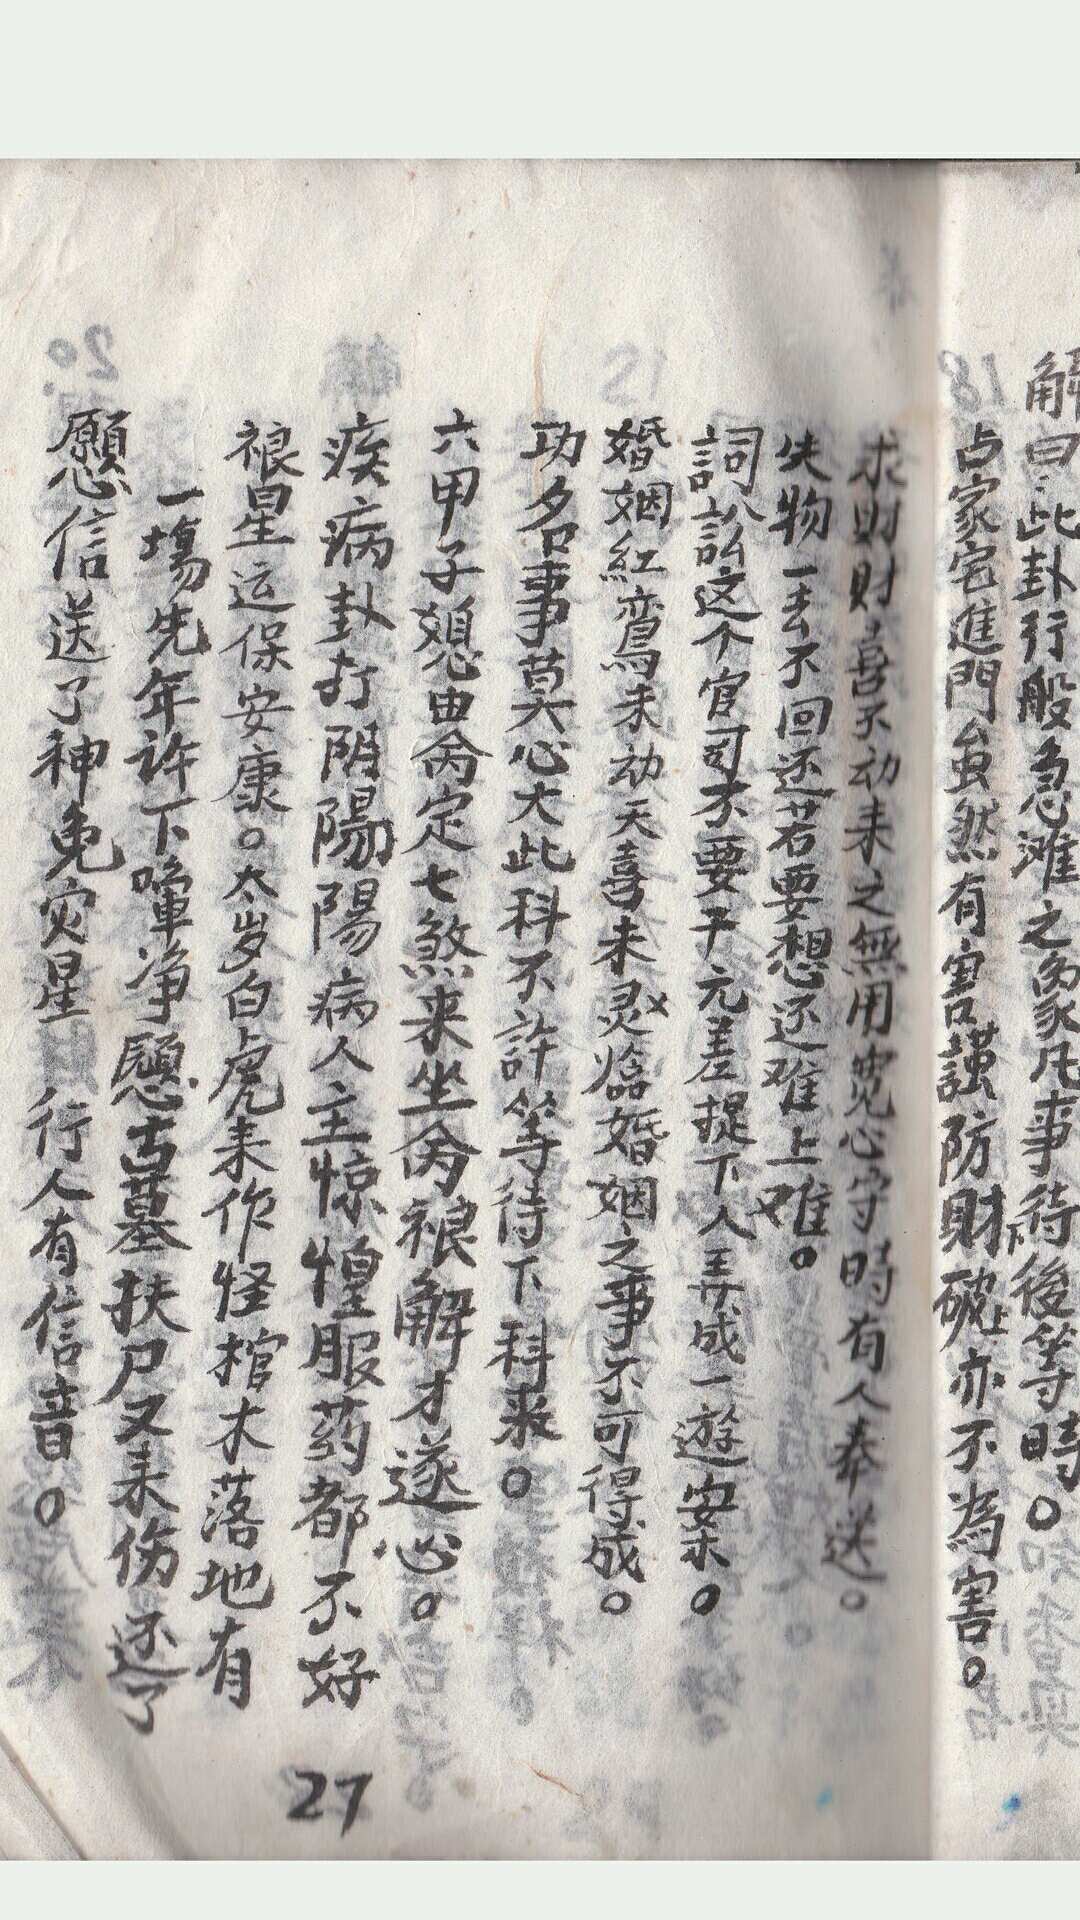 解曰：此卦行般急滩之象凡事待後等時。
占家宅進門虽然有害謹防財破亦不為害。
求財財喜不动来之無用宽心守時有人奉送。
失物一去不回还若要想还难上难。
詞訟这个官司不要干元差提下人弄成一遊安乐。
婚姻紅鸾未动天喜未灵临婚姻之事不可得成。
功名事莫心大此科不許等待下科来。
六甲子媳由命定七煞来坐命禳解才遂心。
疾病卦打阴陽陽病人主惊惶服药都不好
禳星运保安康。太岁白虎来作怪棺木落地有
一塲先年许下啳净愿古墓扶尸又来伤还了
願信送了神免灾星 行人有信音。
27